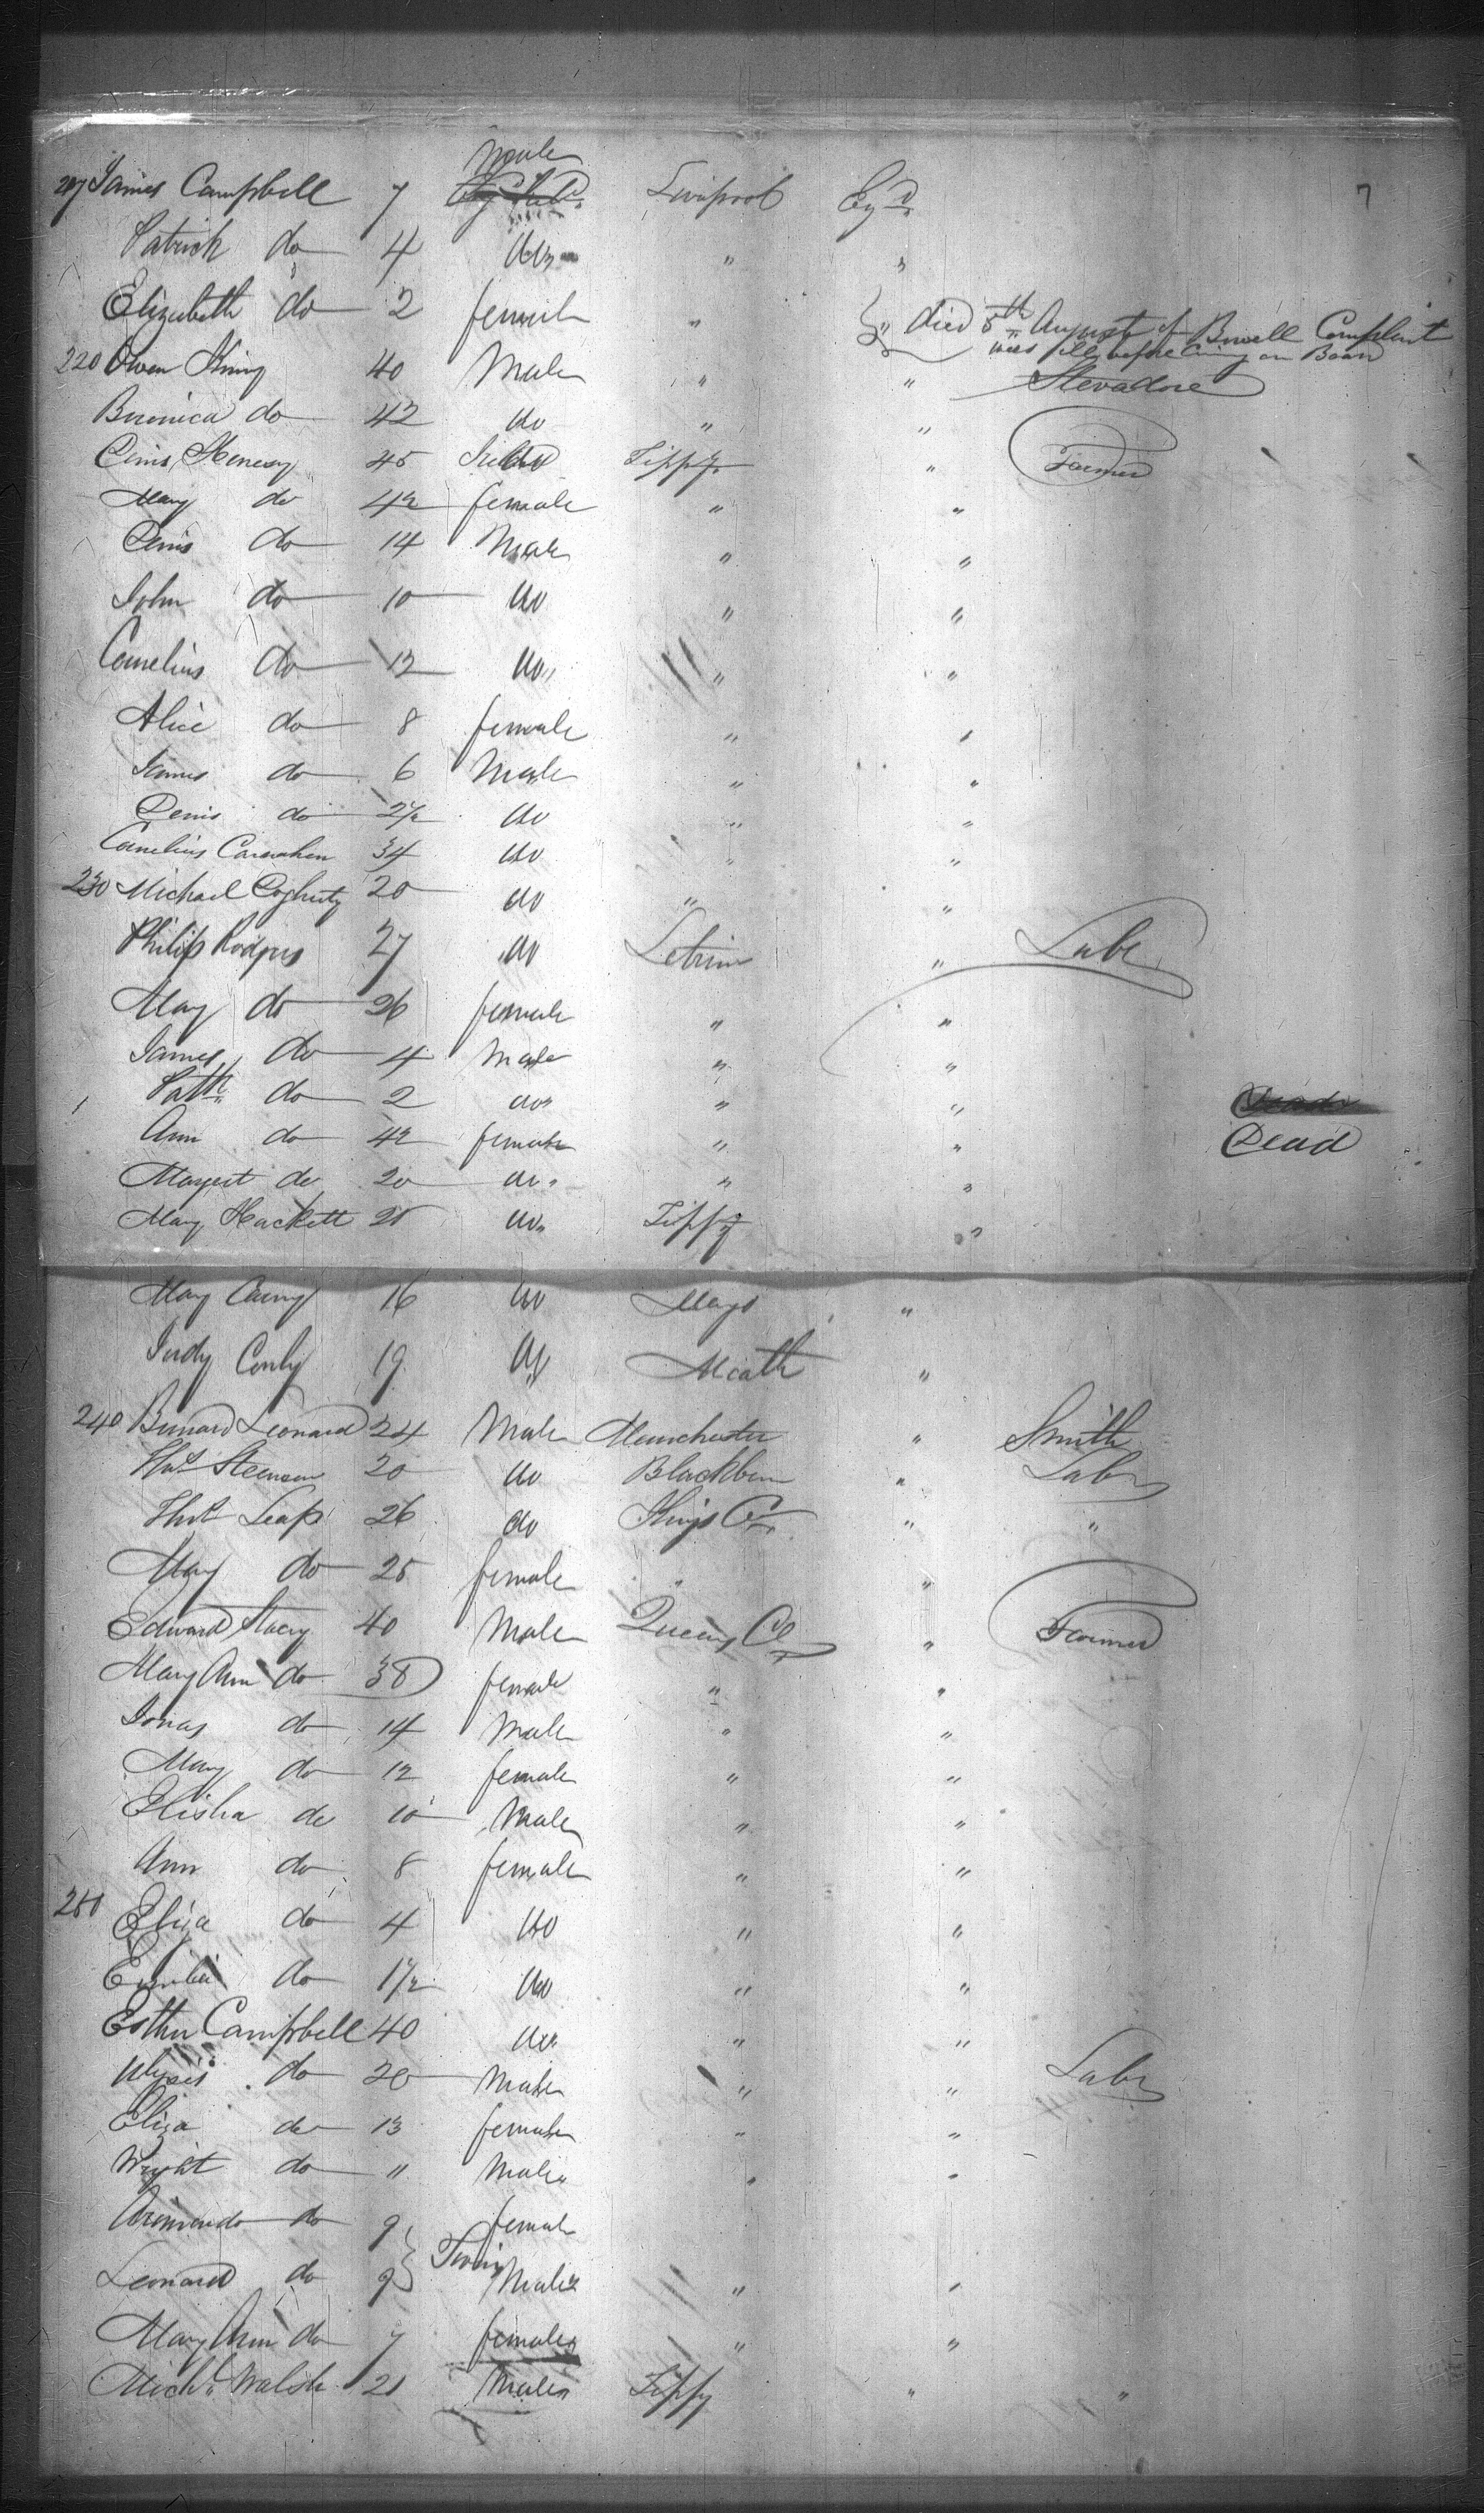 Male
217 James Campbell 7 Liverpool Engd 7
Patrick do 4 do " "
Elizabeth do 2 female " " died 5th August of Bowell Complaint
was ill before Coming on Board
220 Owen King 40 Male " " Stevadore
do 42 do " "
Denis Henesy 45 Tippy " Farmer
Mary do 42 female " "
Denis do 14 Male " "
John do 10 do " "
Cornelius do 12 do " "
Alice do 8 female " "
James do 6 Male " "
Denis do 2½ do " "
Cornelius 34 do " "
230 Michael 20 do " "
Philip Rodgers 27 do Letrim " Labr
Mary do 26 female " "
James do 4 Male " "
Patk do 2 do " " Dead
Ann do 42 female " " Dead
Margret do 20 do " "
Mary Hackett 25 do Tippy "
Mary 16 do Mayo "
Judy Conly 19 do Meath "
240 Bernard Leonard 24 Male Manchester " Smith
20 do Blackburn " Labr
Thos Leap 26 do Kings Co " "
Mary do 25 female " "
Edward Stacy 40 Male Queens Co " Farmer
Mary Ann do 38 female " "
Jonas do 14 Male " "
Mary do 12 female " "
Elisha do 10 Male " "
Ann do 8 female " "
250 Eliza do 4 do " "
do 1½ do " "
Esther Campbell 40 do " "
do 20 Male " " Labr
Eliza do 13 female " "
Wright do " Male " "
do 9 female
Twins
Leonard do 9 Male " "
Mary Ann do 7 female " "
Michl Walsh 21 Male Tippy " "